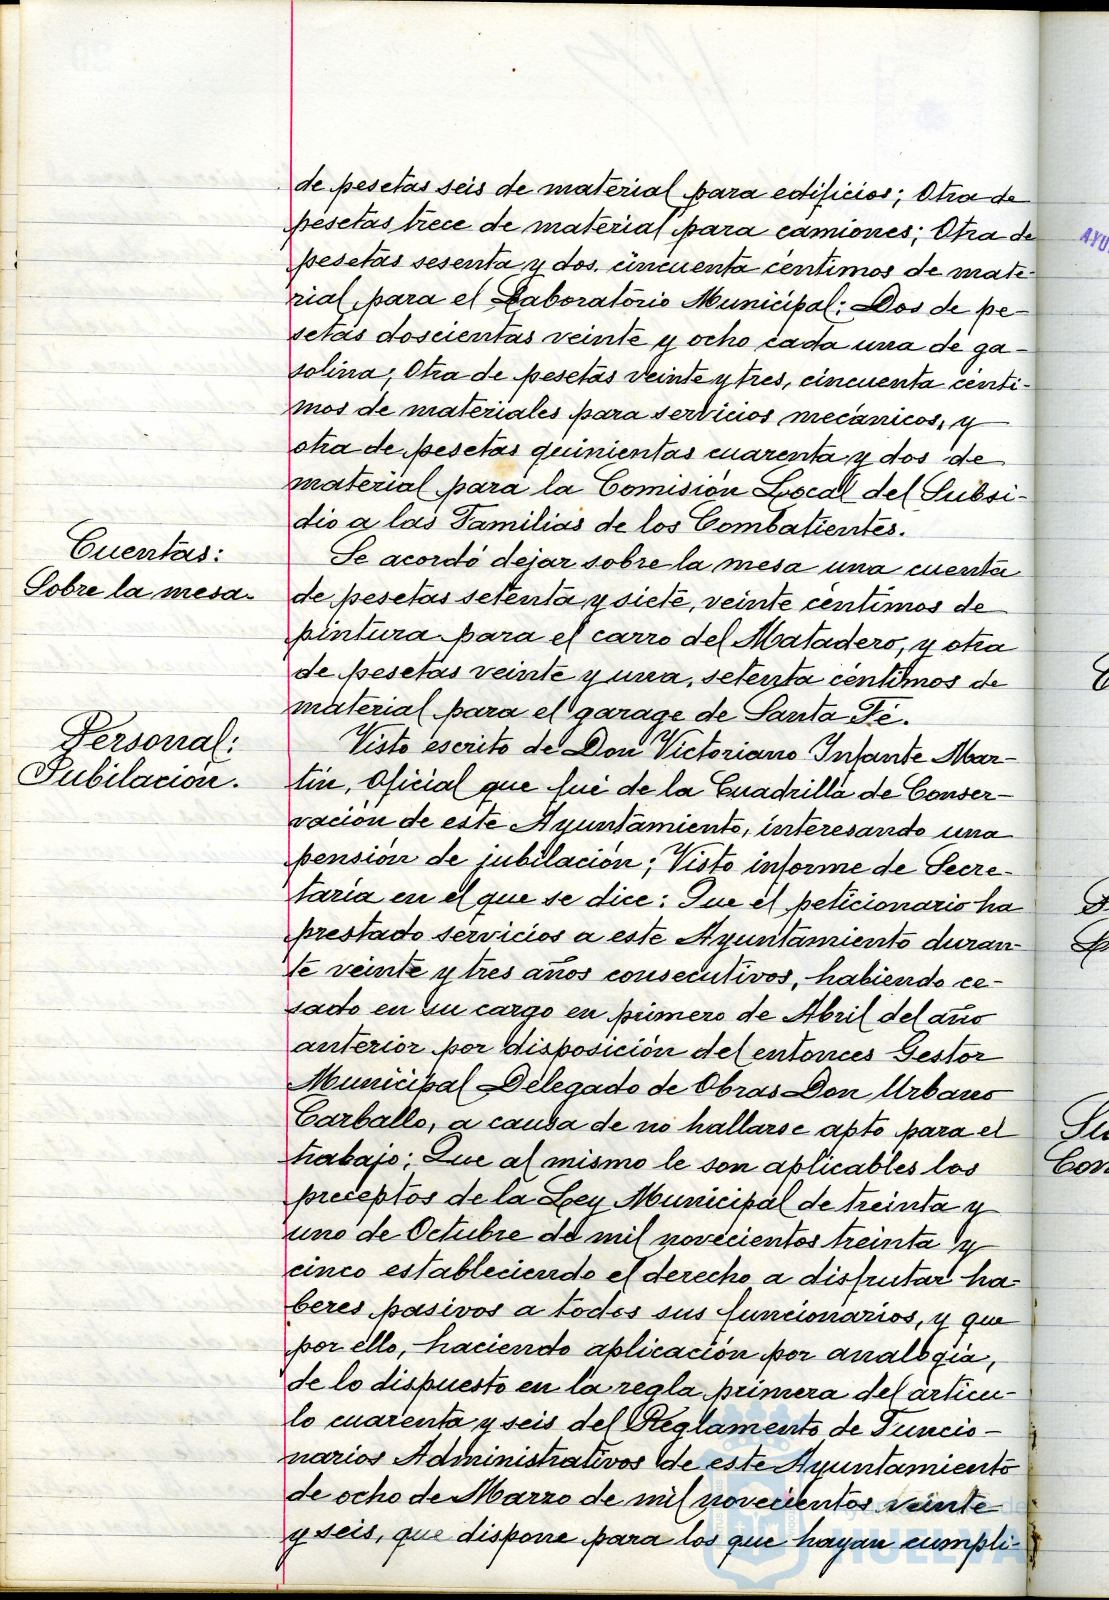 de pesetas seis de material para edificios; Otra de
pesetas trece de material para camiones; Otra de
pesetas sesenta y dos, cincuenta céntimos de mate-
rial para el Laboratório Municipal; Dos de pe-
setas doscientas veinte y ocho cada una de ga-
solina; Otra de pesetas veinte y tres, cincuenta cénti-
mos de materiales para servicios mecánicos, y
otra de pesetas quinientas cuarenta y dos de
material para la Comisión Local del Subsi-
dio a las Familias de los Combatientes.
Cuentas:
Sobre la mesa.
Se acordó dejar sobre la mesa una cuenta
de pesetas setenta y siete, veinte céntimos de
pintura para el carro del Matadero, y otra
de pesetas veinte y una, setenta céntimos de
material para el garage de Santa Fé.
Personal:
Jubilación.
Visto escrito de Don Victoriano Infante Mar-
tín, Oficial que fué de la Cuadrilla de Conser-
vación de este Ayuntamiento, interesando una
pensión de jubilación; Visto informe de Secre-
taría en el que se dice: Que el peticionario ha
prestado servicios a este Ayuntamiento duran-
te veinte y tres años consecutivos, habiendo ce-
sado en su cargo en primero de Abril del año
anterior por disposición del entonces Gestor
Municipal Delegado de Obras Don Urbano
Carballo, a causa de no hallarse apto para el
trabajo; Que al mismo le son aplicables los
preceptos de la Ley Municipal de treinta y
uno de Octubre de mil novecientos treinta y
cinco estableciendo el derecho a disfrutar ha-
beres pasivos a todos sus funcionarios, y que
por ello, haciendo aplicación por analogía,
de lo dispuesto en la regla primera del artícu-
lo cuarenta y seis del Reglamento de Funcio-
narios Administrativos de este Ayuntamiento
de ocho de Marzo de mil novecientos veinte
y seis, que dispone para los que hayan cumpli-
AYU
Su
Con
HUELVA